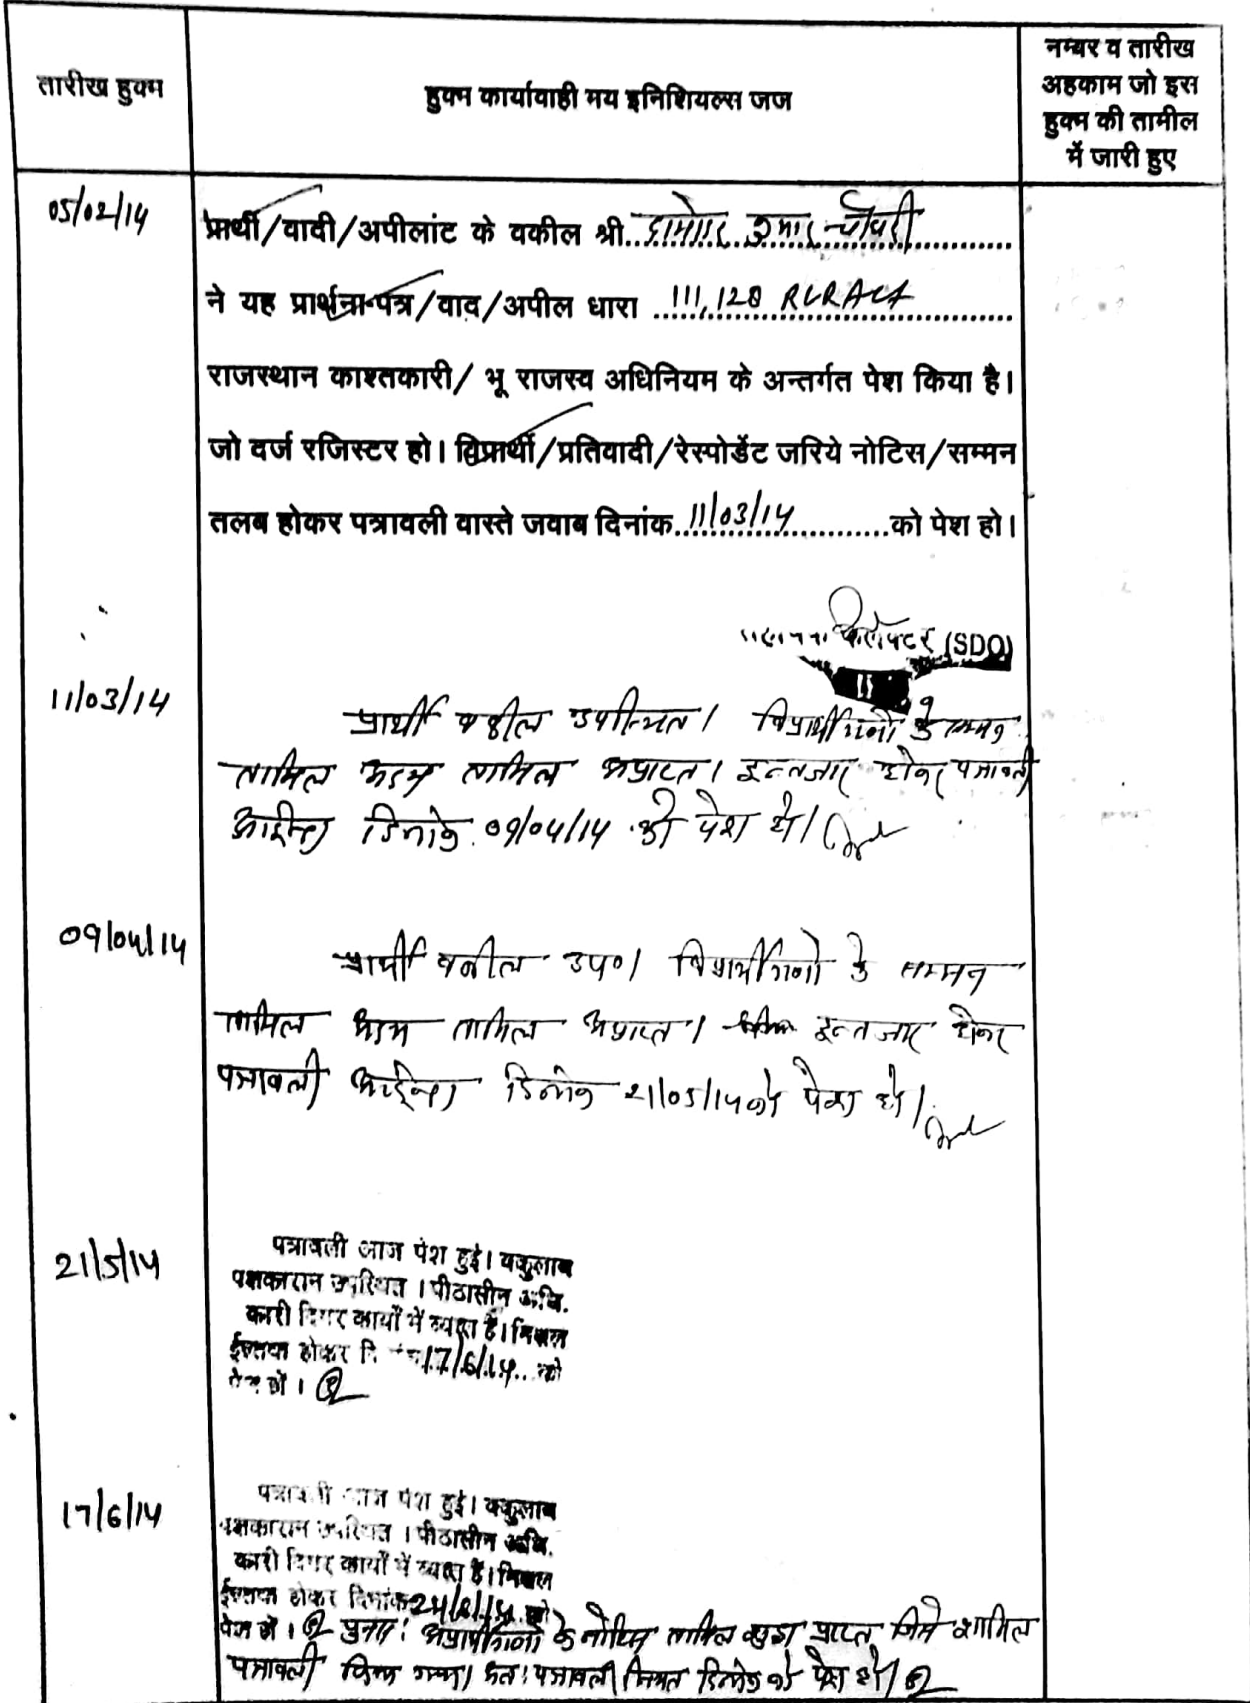 तारीख हुक्म
हुक्म कार्यावाही मय इनिशियल्स जज
नम्बर व तारीख
अहकाम जो इस
हुक्म की तामील
में जारी हुए
05/02/14
प्रार्थी/वादी/अपीलांट के वकील श्री कुमार चौधरी
ने यह प्रार्थना-पत्र/वाद/अपील धारा 111,128 RLRAct
राजस्थान काश्तकारी/ भू राजस्व अधिनियम के अन्तर्गत पेश किया है।
जो दर्ज रजिस्टर हो। विप्रार्थी/प्रतिवादी/रेस्पोडेंट जरिये नोटिस/सम्मन
तलब होकर पत्रावली वास्ते जवाब दिनांक 11/03/14 को पेश हो।
(SDO)
11/03/14
प्रार्थी वकील उपस्थित। विप्रार्थीगणो के सम्मन
तामिल अदम तामिल अप्राप्त। इन्तजार होकर पत्रावली
आईन्दा दिनांक 09/04/14 को पेश हो।
09/04/14
प्रार्थी वकील उप०। विप्रार्थीगणो के सम्मन
तामिल अदम तामिल अप्राप्त। इन्तजार होकर
पत्रावली आईन्दा दिनांक 21/05/14 को पेश हो।
21/5/14
पत्रावली आज पेश हुई। वकुलाय
पक्षकारान उपस्थित । पीठासीन अधि.
कारी दिगर कार्यों में व्यस्त है। मिसल
ईल्तवा होकर दि 17/6/14 को
पेश हों ।
17/6/14
पत्रावली आज पेश हुई। वकुलाय
पक्षकारान उपस्थित । पीठासीन अधि.
कारी दिगर कार्यों में व्यस्त है। मिसल
ईल्तवा होकर दिनांक को
पेश हों । पुनश्च: अप्रार्थीगणो के नोटिस तामिल शुदा प्राप्त जिसे शामिल
पत्रावली किया गया। अत: पत्रावली नियत दिनांक को पेश हो।